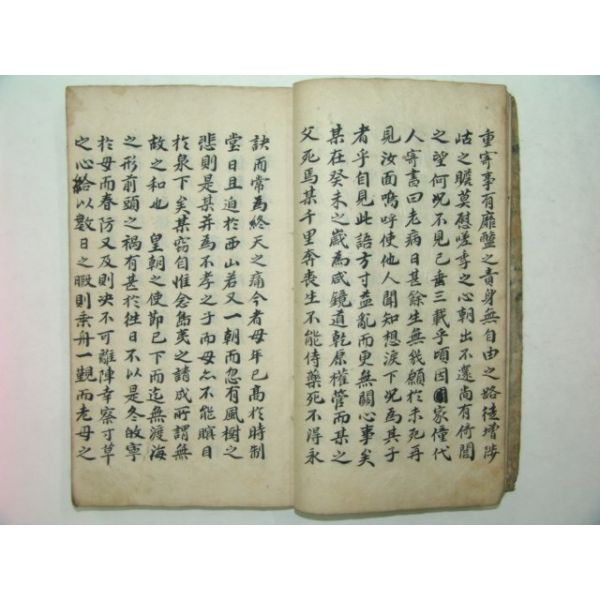 重寄事有靡盬之責身無自由之路徒增陟
岵之瞻莫慰嗟季之心朝出不還尚有倚閭
之望何況不見已垂三載乎頃因國家僮代
人寄書曰老病日甚餘生無幾願於未死再
見汝面嗚呼使他人聞知想淚下況為其子
者乎自見此語方寸益亂而更無關心事矣
某在癸未之歲為咸鏡道乾原權管而某之
父死焉某千里奔喪生不能侍藥死不得永
訣而常為終天之痛今者母年已高於時制
堂日且迫於西山若又一朝而忽有風樹之
悲則是某并為不孝之子而母亦不能瞑目
於泉下矣某竊自惟念島夷之請成所謂無
故之和也 皇朝之使節已下而迄無渡海
之形前頭之禍有甚於徃日不以是冬故寧
於母而春防又及則決不可離陣幸察寸草
之心給以數日之暇則乘舟一觀而老母之